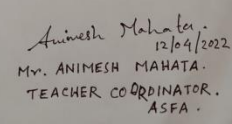 Animesh Mahata.
12/04/2022
Mr. ANIMESH MAHATA.
TEACHER COORDINATOR.
ASFA.